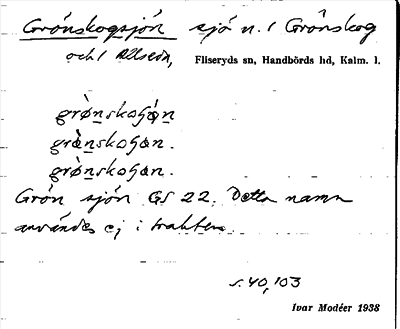 Grönskogsjön sjö n. i Grönskog
och i Allserön, Fliseryds sn, Handbörds hd, Kalm. l.
grø̀nskoгán
grø̀nskogan.
grø̀nskogan.
Grön sjön GS 22. Detta namn
användes ej i trakten.
s. 40, 103
Ivar Modéer 1938